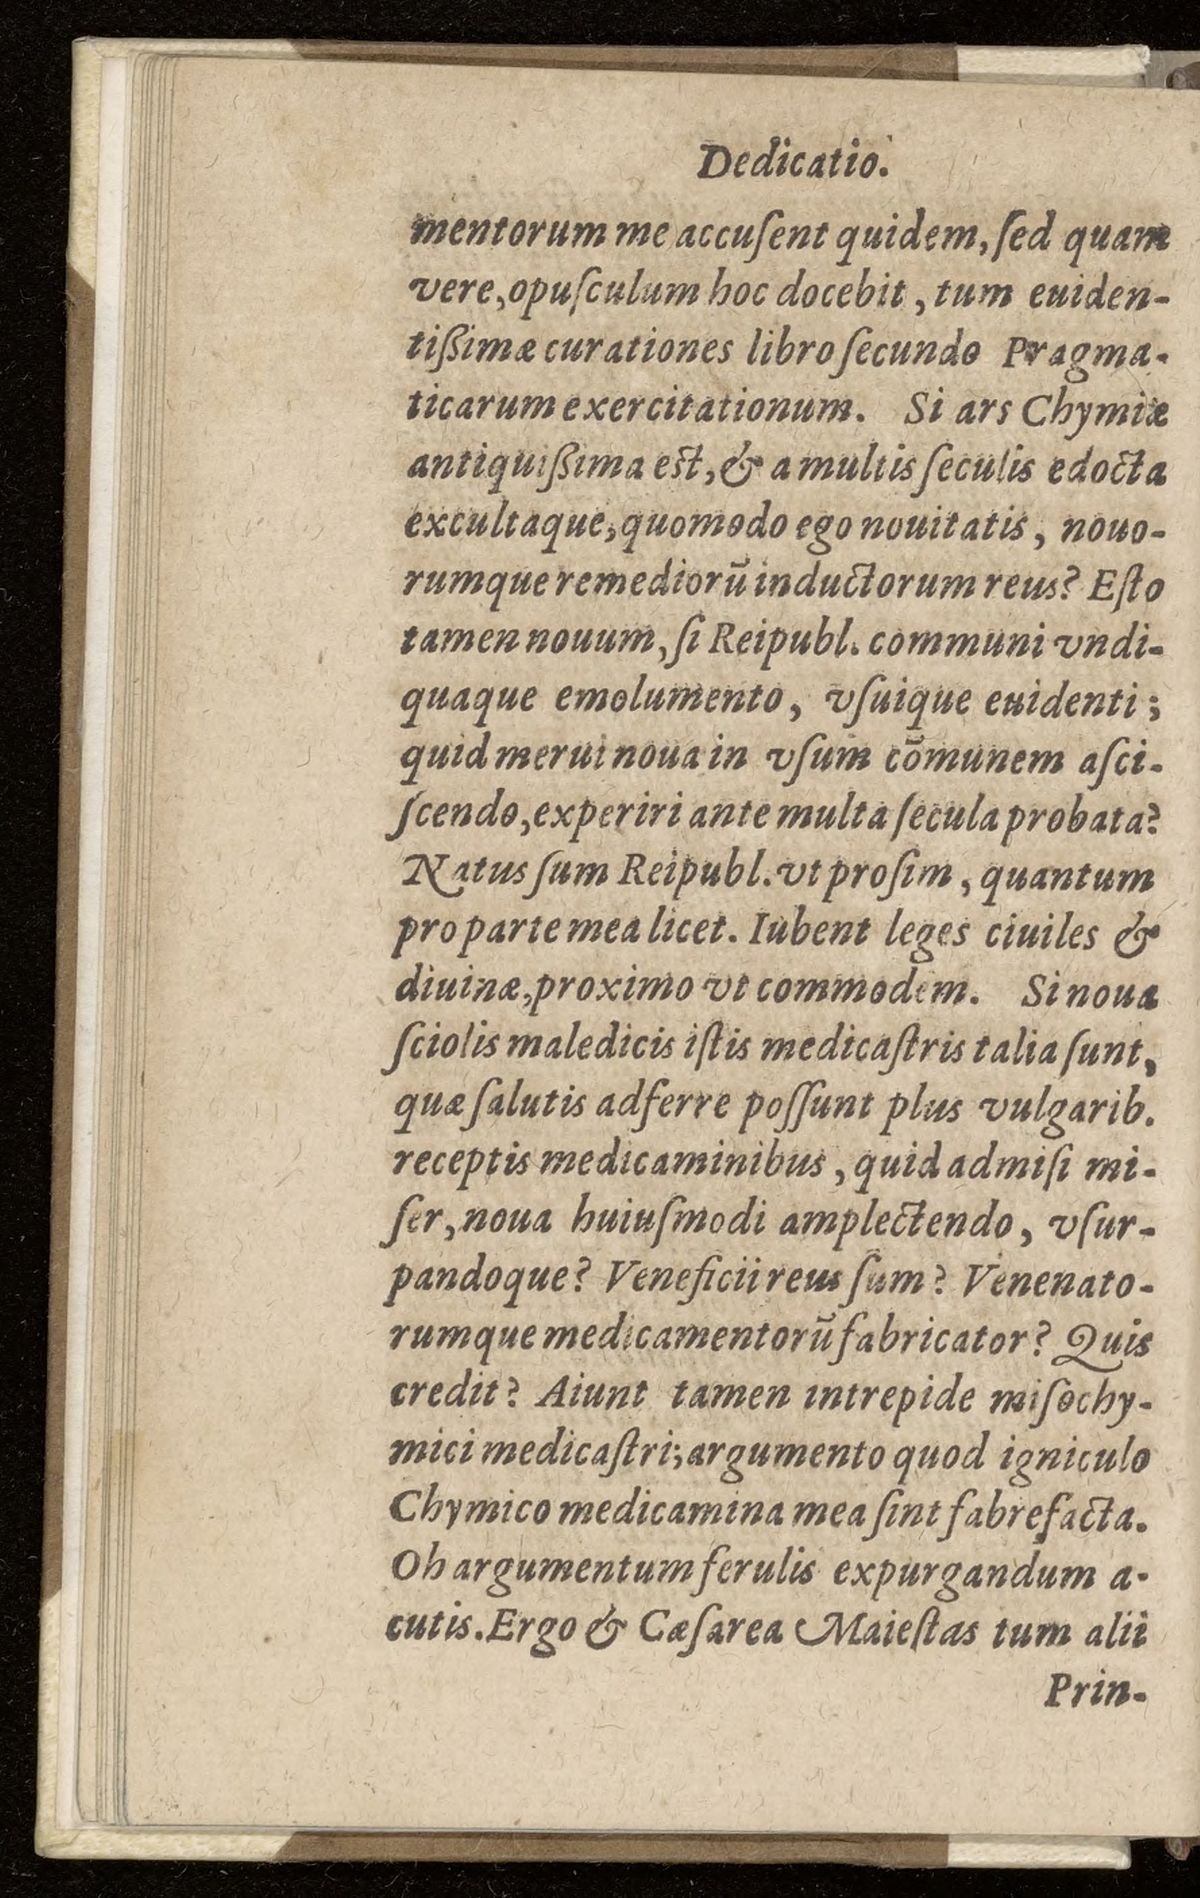 Dedicatio.
mentorum me accuſent quidem, ſed quam
vere, opuſculum hoc docebit, tum euiden-
tißimæ curationes libro ſecundo Pragma-
ticarum exercitationum. Si ars Chymiæ
antiquißima est, & a multis ſeculis edocta
excultaque, quomodo ego nouitatis, nouo-
rumque remediorū inductorum reus? Eſto
tamen nouum, ſi Reipubl. communi vndi-
quaque emolumento, vſuique euidenti;
quid merui noua in vſum cōmunem aſci-
ſcendo, experiri ante multa ſecula probata?
Natus ſum Reipubl. vt proſim, quantum
pro parte mea licet. Iubent leges ciuiles &
diuinæ, proximo vt commodem. Si noua
ſciolis maledicis iſtis medicaſtris talia ſunt,
quæ ſalutis adferre poſſunt plus vulgarib.
receptis medicaminibus, quid admiſi mi-
ſer, noua huiuſmodi amplectendo, vſur-
pandoque? Veneficii reus ſum? Venenato-
rumque medicamentorū fabricator? Quis
credit? Aiunt tamen intrepide miſochy-
mici medicaſtri; argumento quod igniculo
Chymico medicamina mea ſint fabrefacta.
Oh argumentum ferulis expurgandum a-
cutis. Ergo & Cæſarea Maieſtas tum alii
Prin-